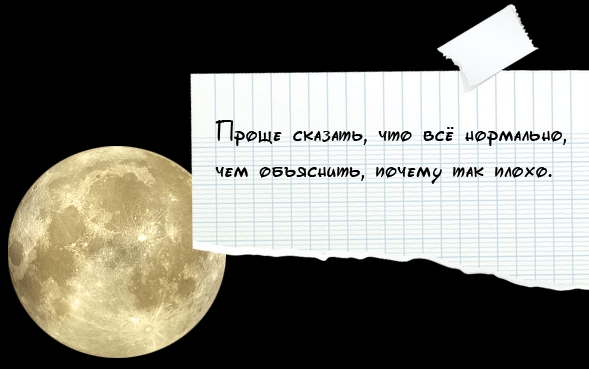 Проще сказать, что всё нормально,
чем объяснить, почему так плохо.